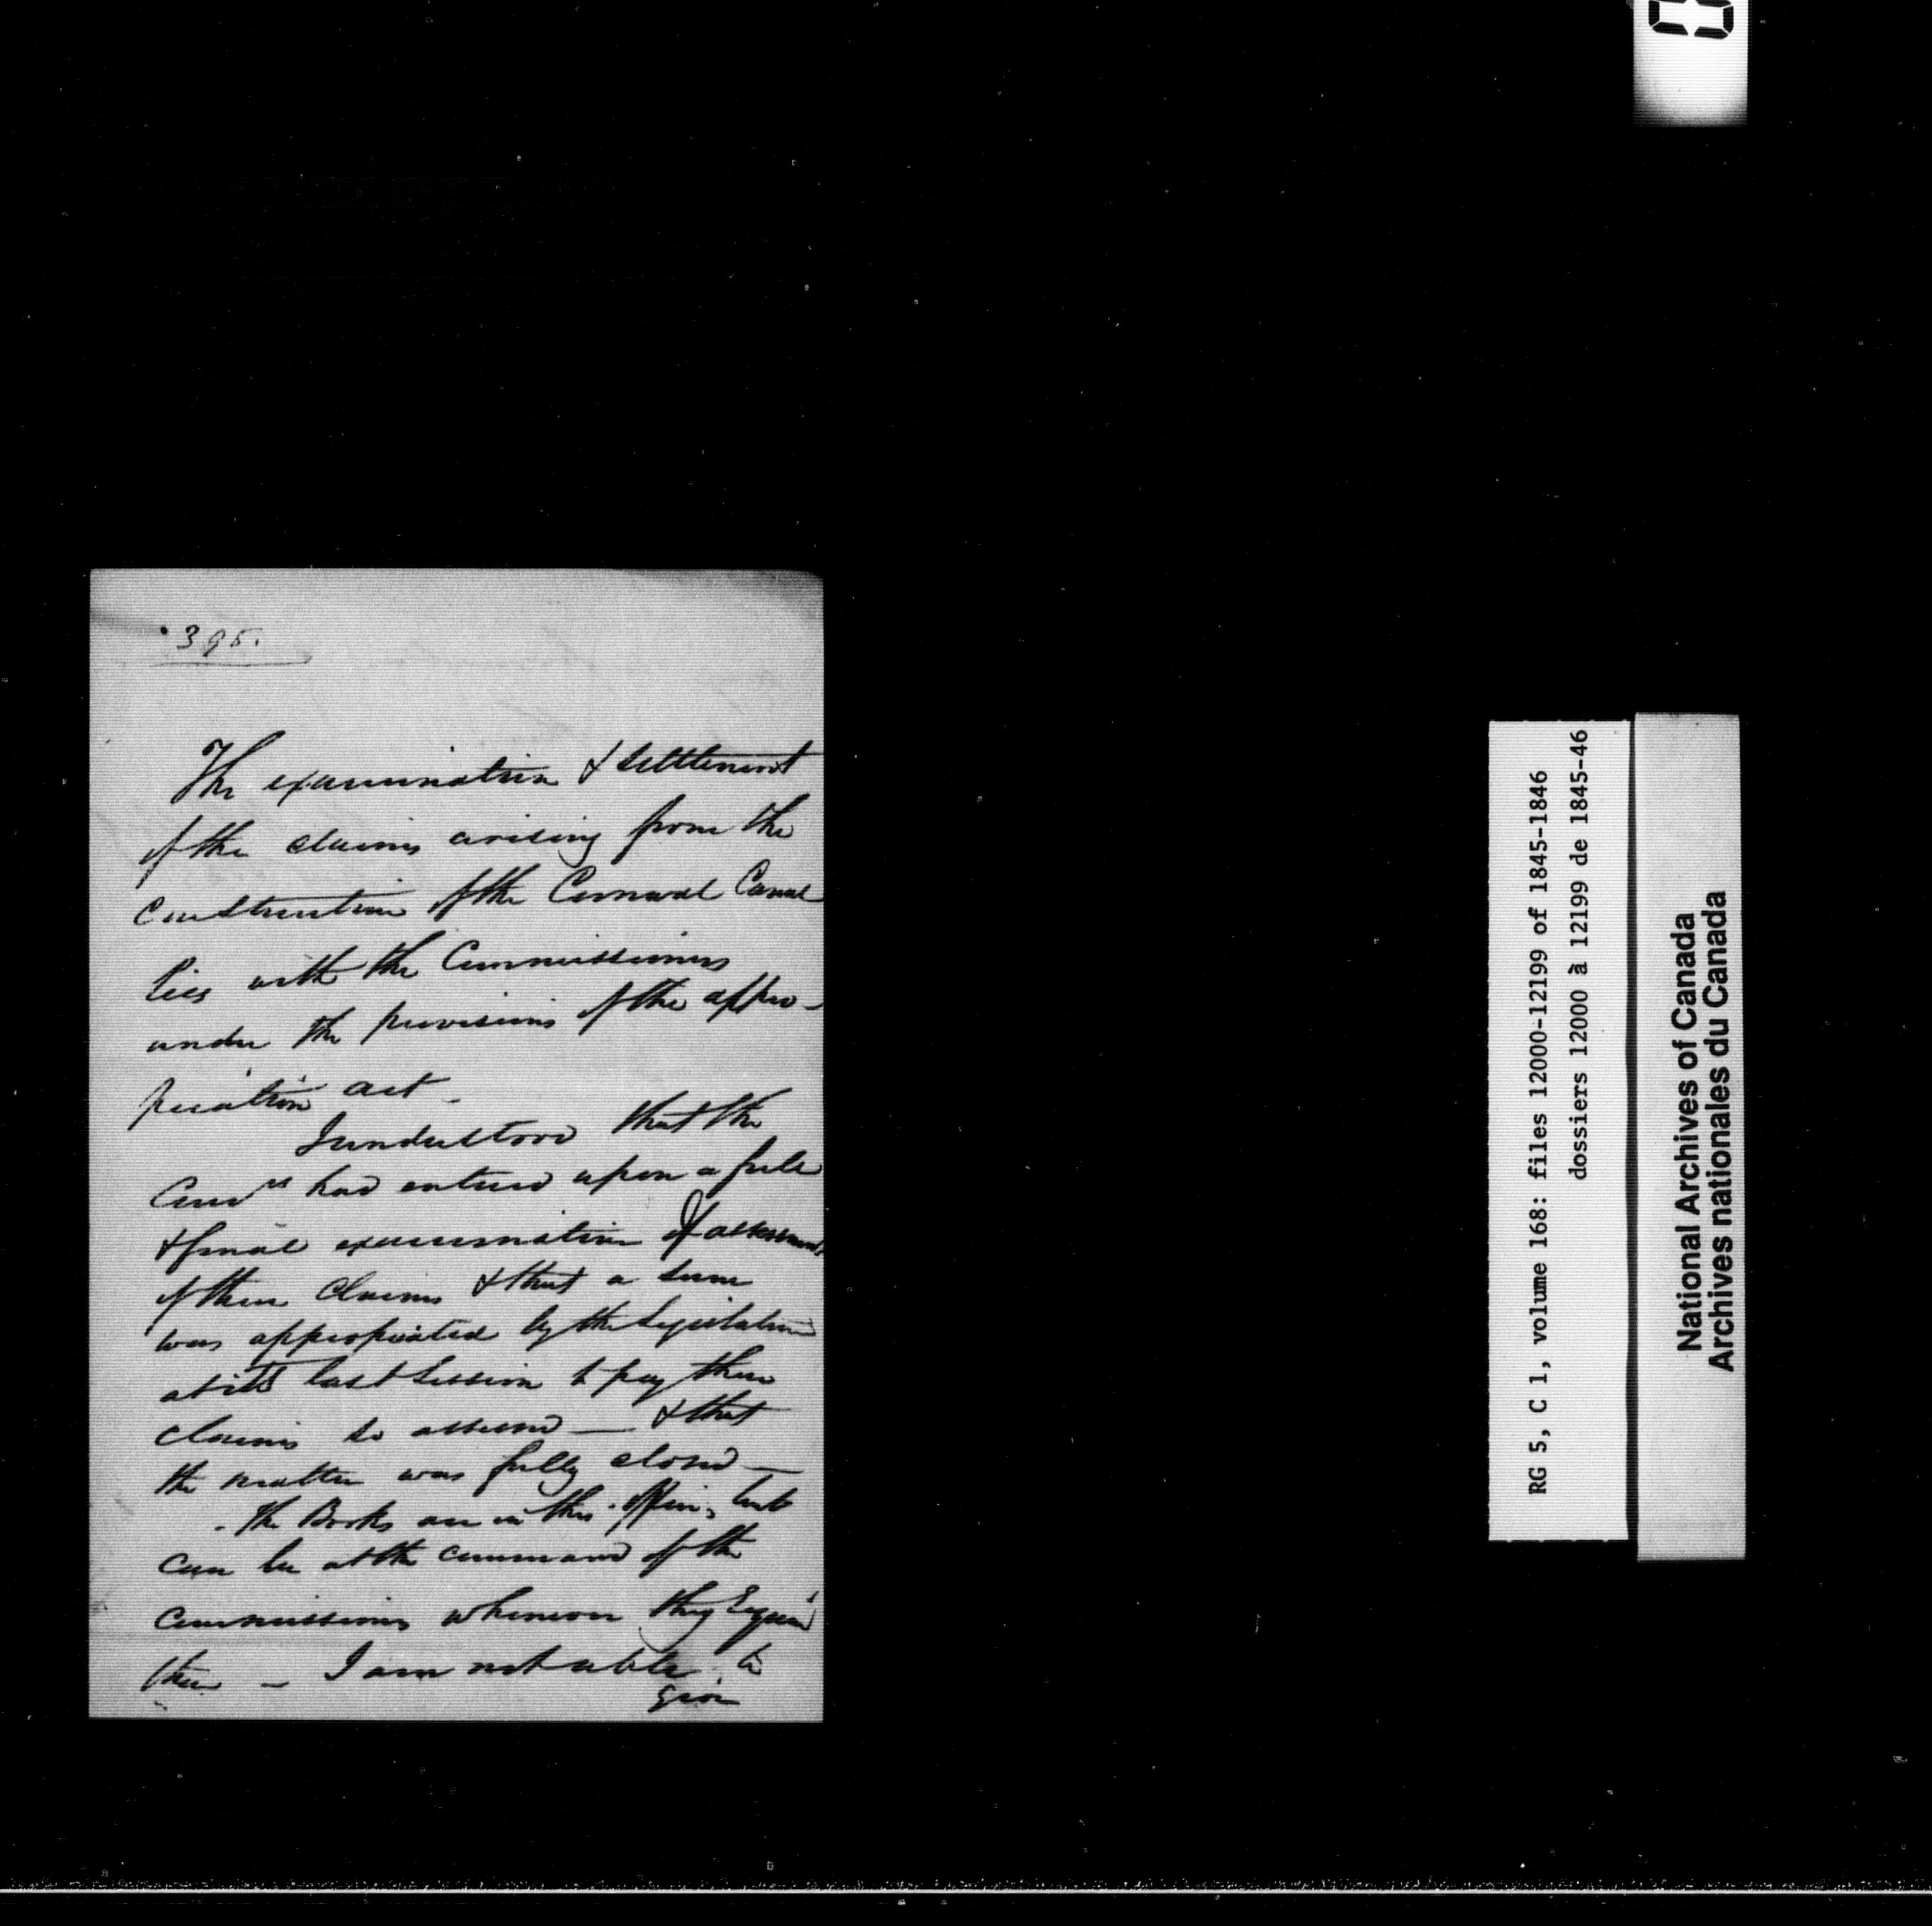 395.
The examination & settlement
of the claims arising from the
construction of the Cornwall Canal
lies with the Commissioners
under the provisions of the appro-
priation act -
I understood that the
Comrs had entered upon a full
& final examination & assessment
of these Claims & that a sum
was appropriated by the Legislature
at its last Session to pay these
claims so assessed — & that
the matter was fully closed —
- The Books are in this office, but
can be at the command of the
Commissioners whenever they require
them - I am not able to
give
RG 5, C 1, volume 168: files 12000-12199 of 1845-1846
dossiers 12000 à 12199 de 1845-46
National Archives of Canada
Archives nationales du Canada